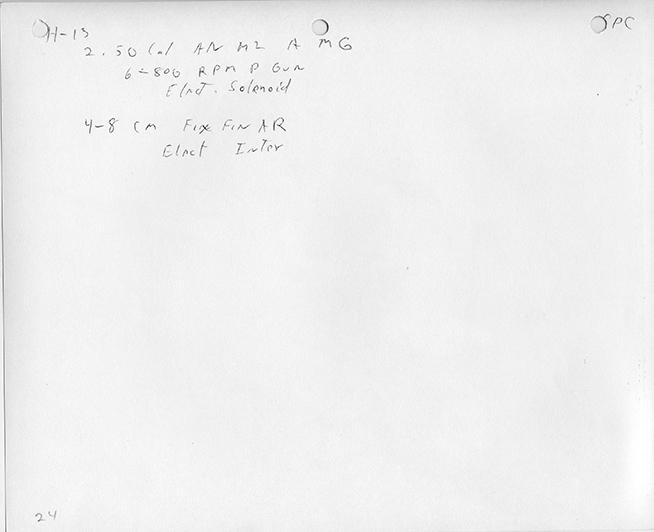 H-13
SPC
2. 50 Cal AN M2 A MG
6-800 RPM P Gun
Elect. Solenoid
4-8 cm Fix Fin AR
Elect Inter
24